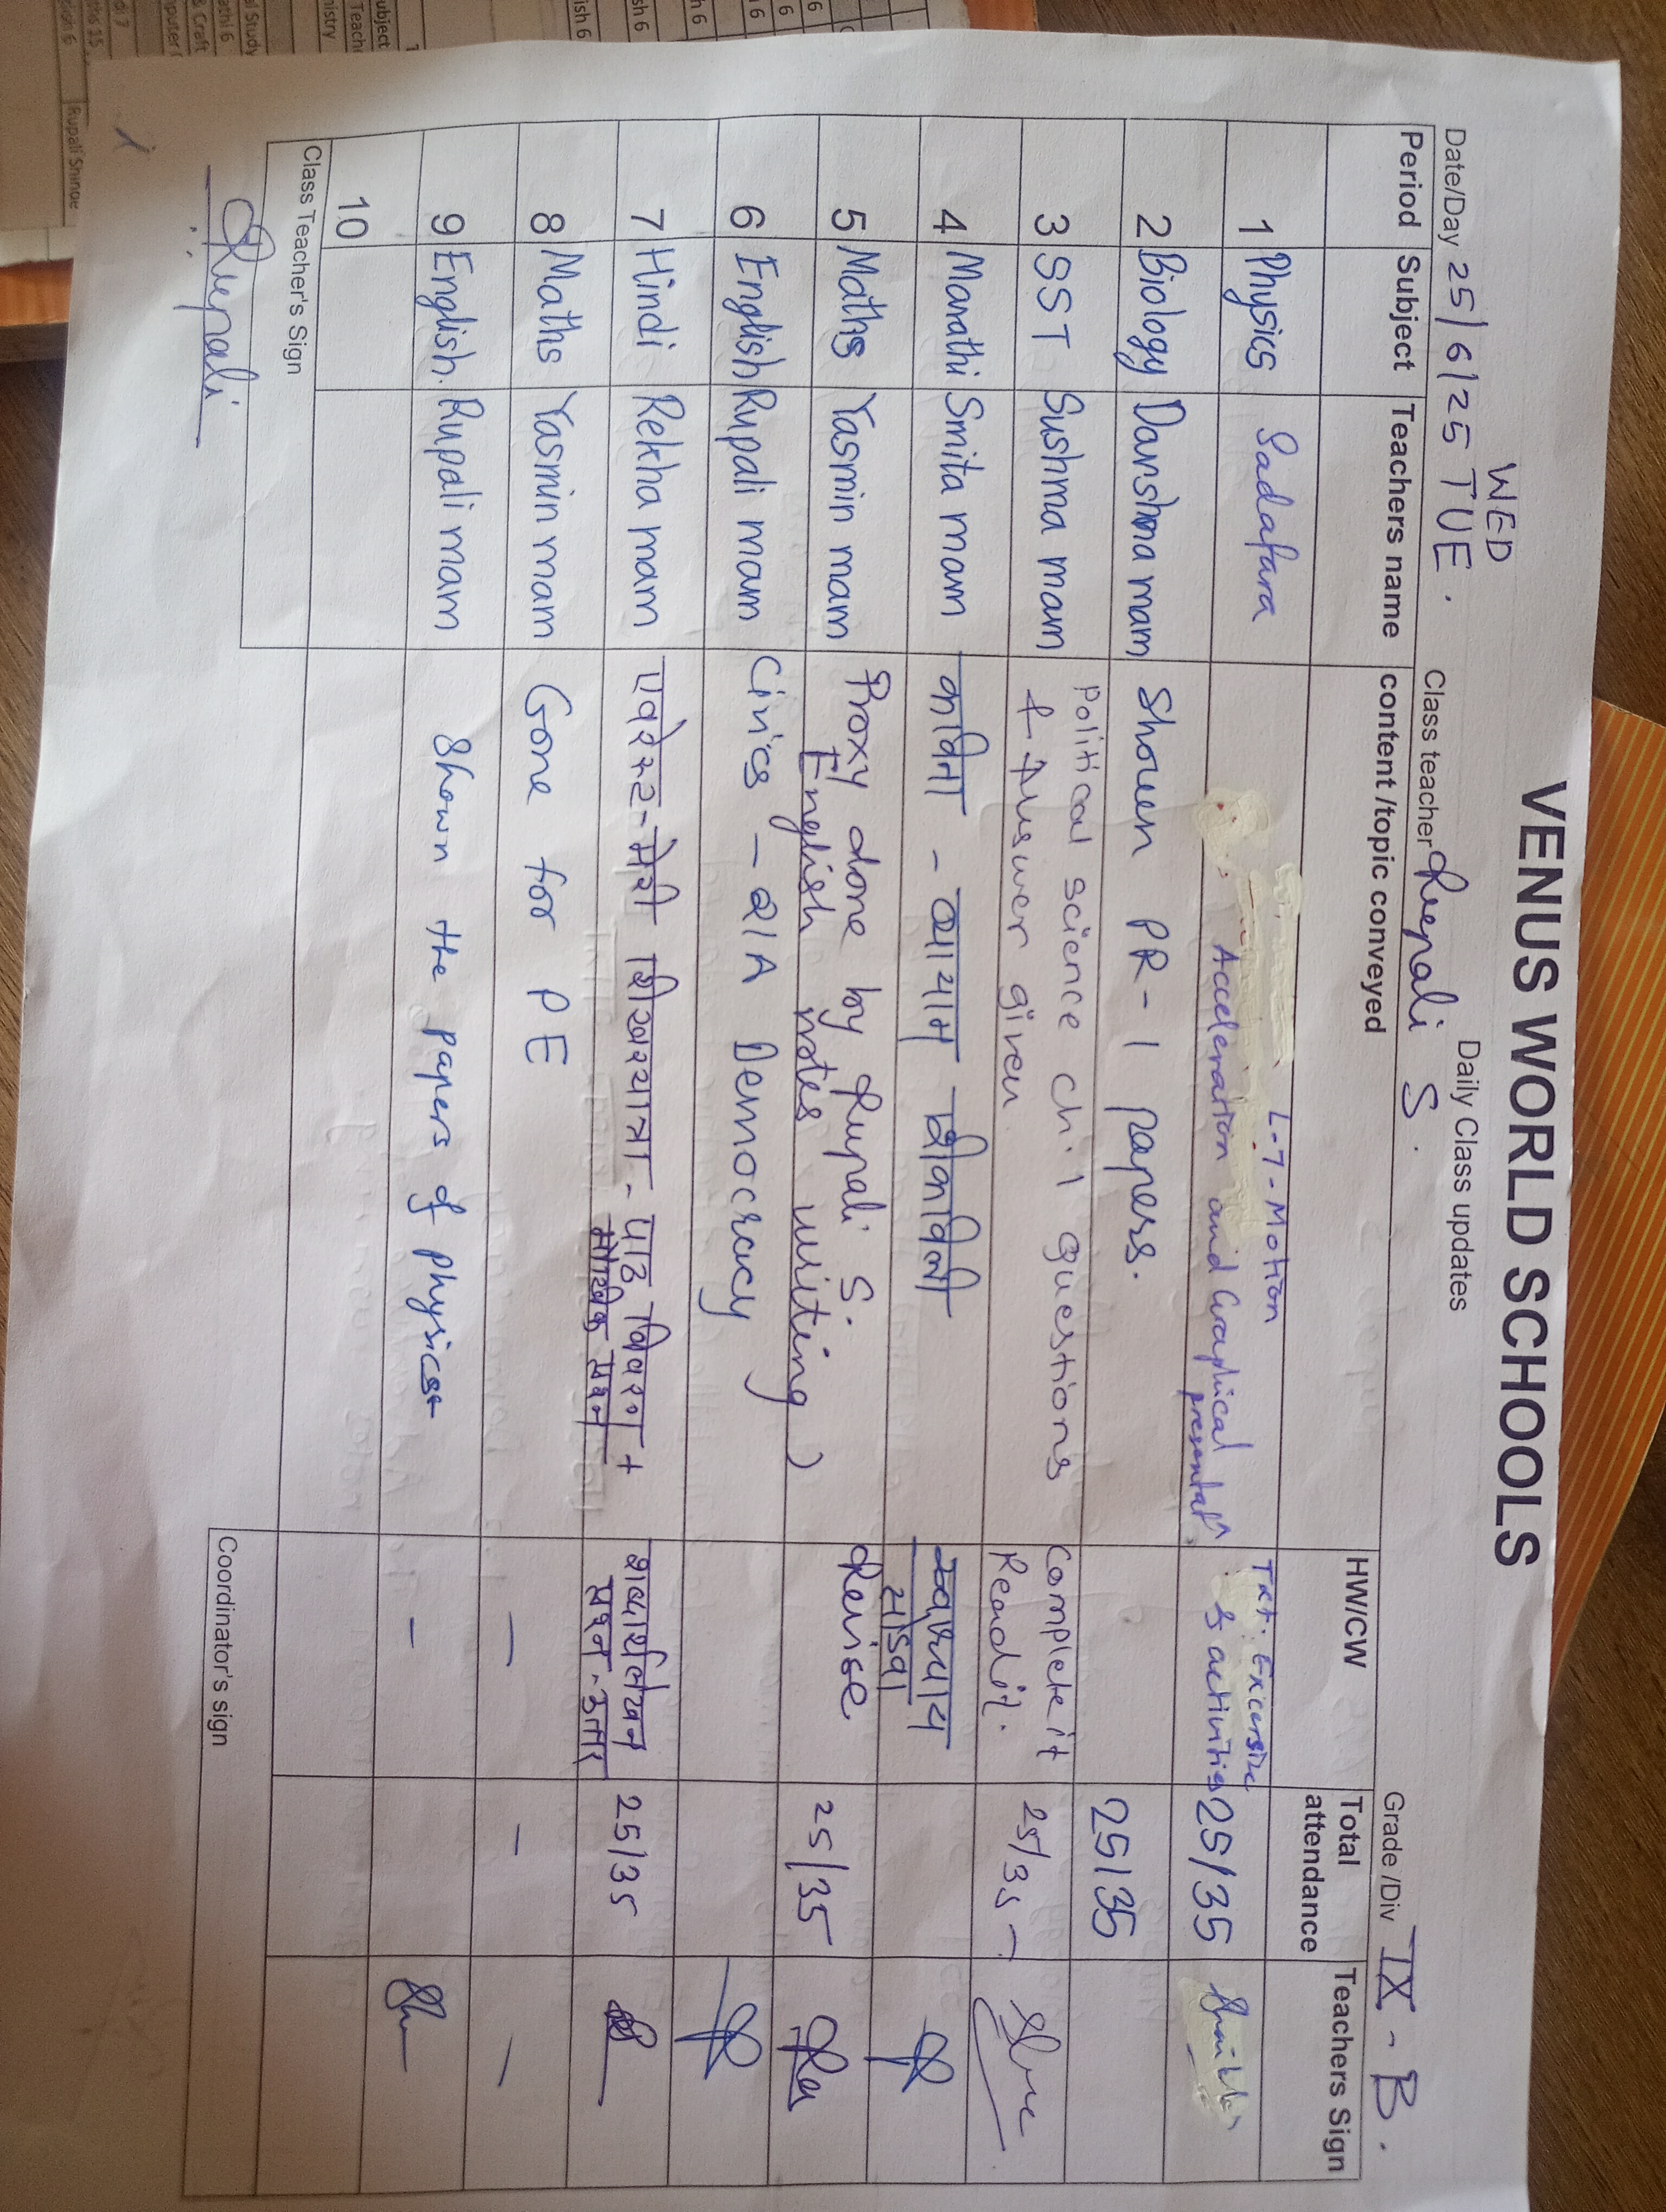 VENUS WORLD SCHOOLS
Daily Class updates
WED
Date/Day 25/6/25 TUE. Class teacher Rupali S. Grade /Div IX - B.
Period Subject Teachers name content /topic conveyed HW/CW Total attendance Teachers Sign
L-7-Motion
1 Physics Sadafara Acceleration and Graphical presentatn. Txt. Excersize & activities 25/35
2 Biology Darshna mam Shown PR-1 papers. 25/35
3 SST Sushma mam Political science ch.1 questions Complete it 25/35
& Answer given Read it.
4 Marathi Smita mam कविता - व्यायाम स्वाध्याय
सोडवा
5 Maths Yasmin mam Proxy done by Rupali S. Revise 25/35
English notes writing)
6 English Rupali mam Civics - 2/A Democracy
7 Hindi Rekha mam एवरेस्ट-मेरी शिखरयात्रा - पाठ विवरण + शब्दार्थलेखन 25/35
मौखिक प्रश्न प्रश्न-उत्तर
8 Maths Yasmin mam Gone for PE — - —
9 English. Rupali mam Shown the papers of physics -
10
Class Teacher's Sign Coordinator's sign
Rupali
Rupali Shinde